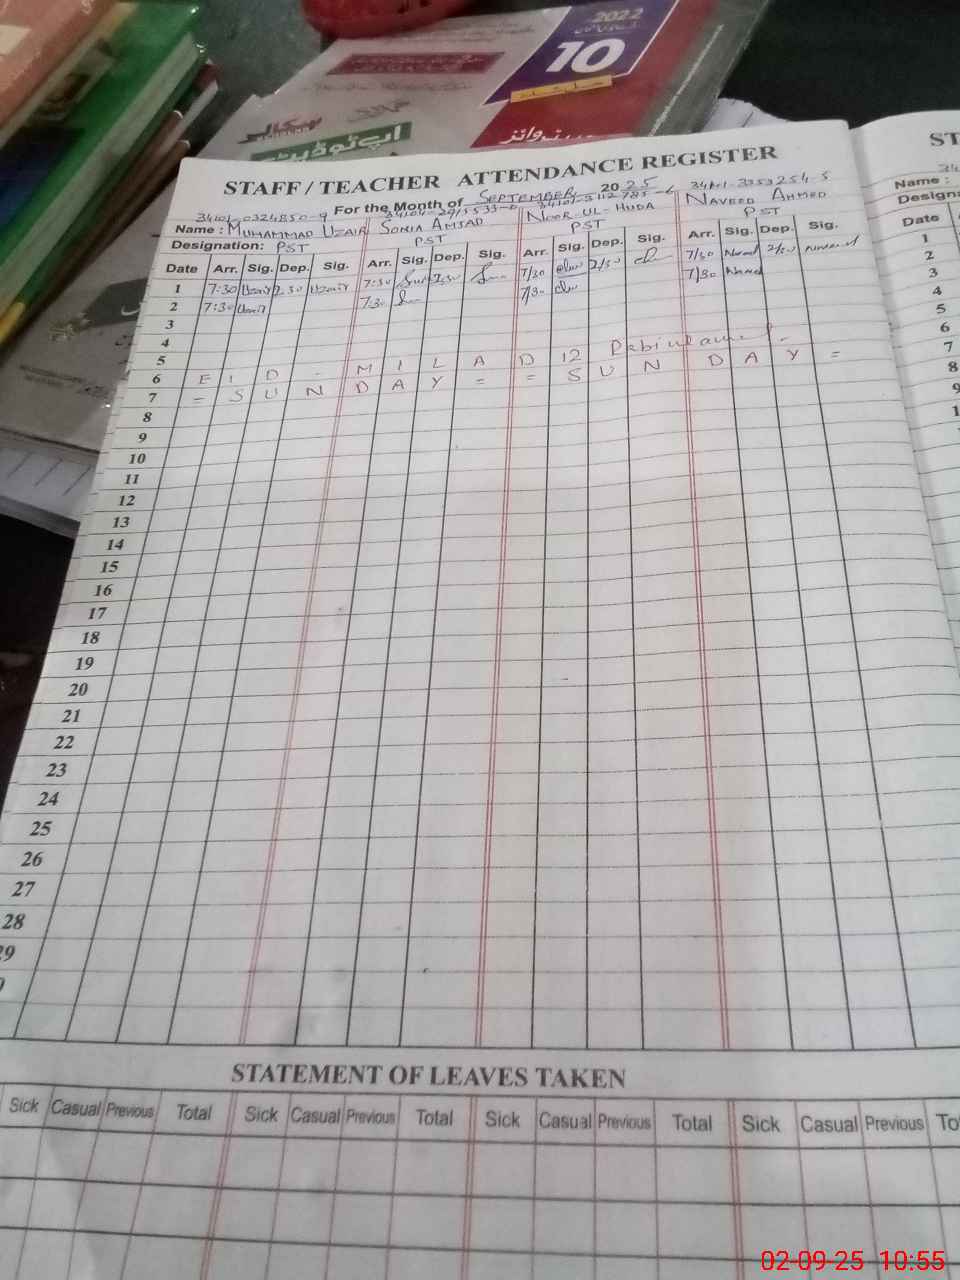 2022
10
اپ ٹو ڈیٹ
STAFF / TEACHER ATTENDANCE REGISTER
For the Month of SEPTEMBER 2025
34101-0324850-9 34101-3353254-5
Name : MUHAMMAD UZAIR SONIA AMJAD NOOR-UL-HUDA NAVEED AHMED
Designation: PST PST PST PST
Date Arr. Sig. Dep. Sig. Arr. Sig. Dep. Sig. Arr. Sig. Dep. Sig. Arr. Sig. Dep. Sig.
1 7:30 Uzair 2:30 Uzair 7:30 2:30 7/30 2/30 7/30 2/30
2 7:30 Uzair 7:30 7/30 7/30
3
4
5
6 EID - MILAD 12 Rabiulawal
7 = SUNDAY = = SUNDAY =
8
9
10
11
12
13
14
15
16
17
18
19
20
21
22
23
24
25
26
27
28
29
STATEMENT OF LEAVES TAKEN
Sick Casual Previous Total Sick Casual Previous Total Sick Casual Previous Total Sick Casual Previous To
ST
Name :
Designa
Date
1
2
3
4
5
6
7
8
9
02-09-25 10:55